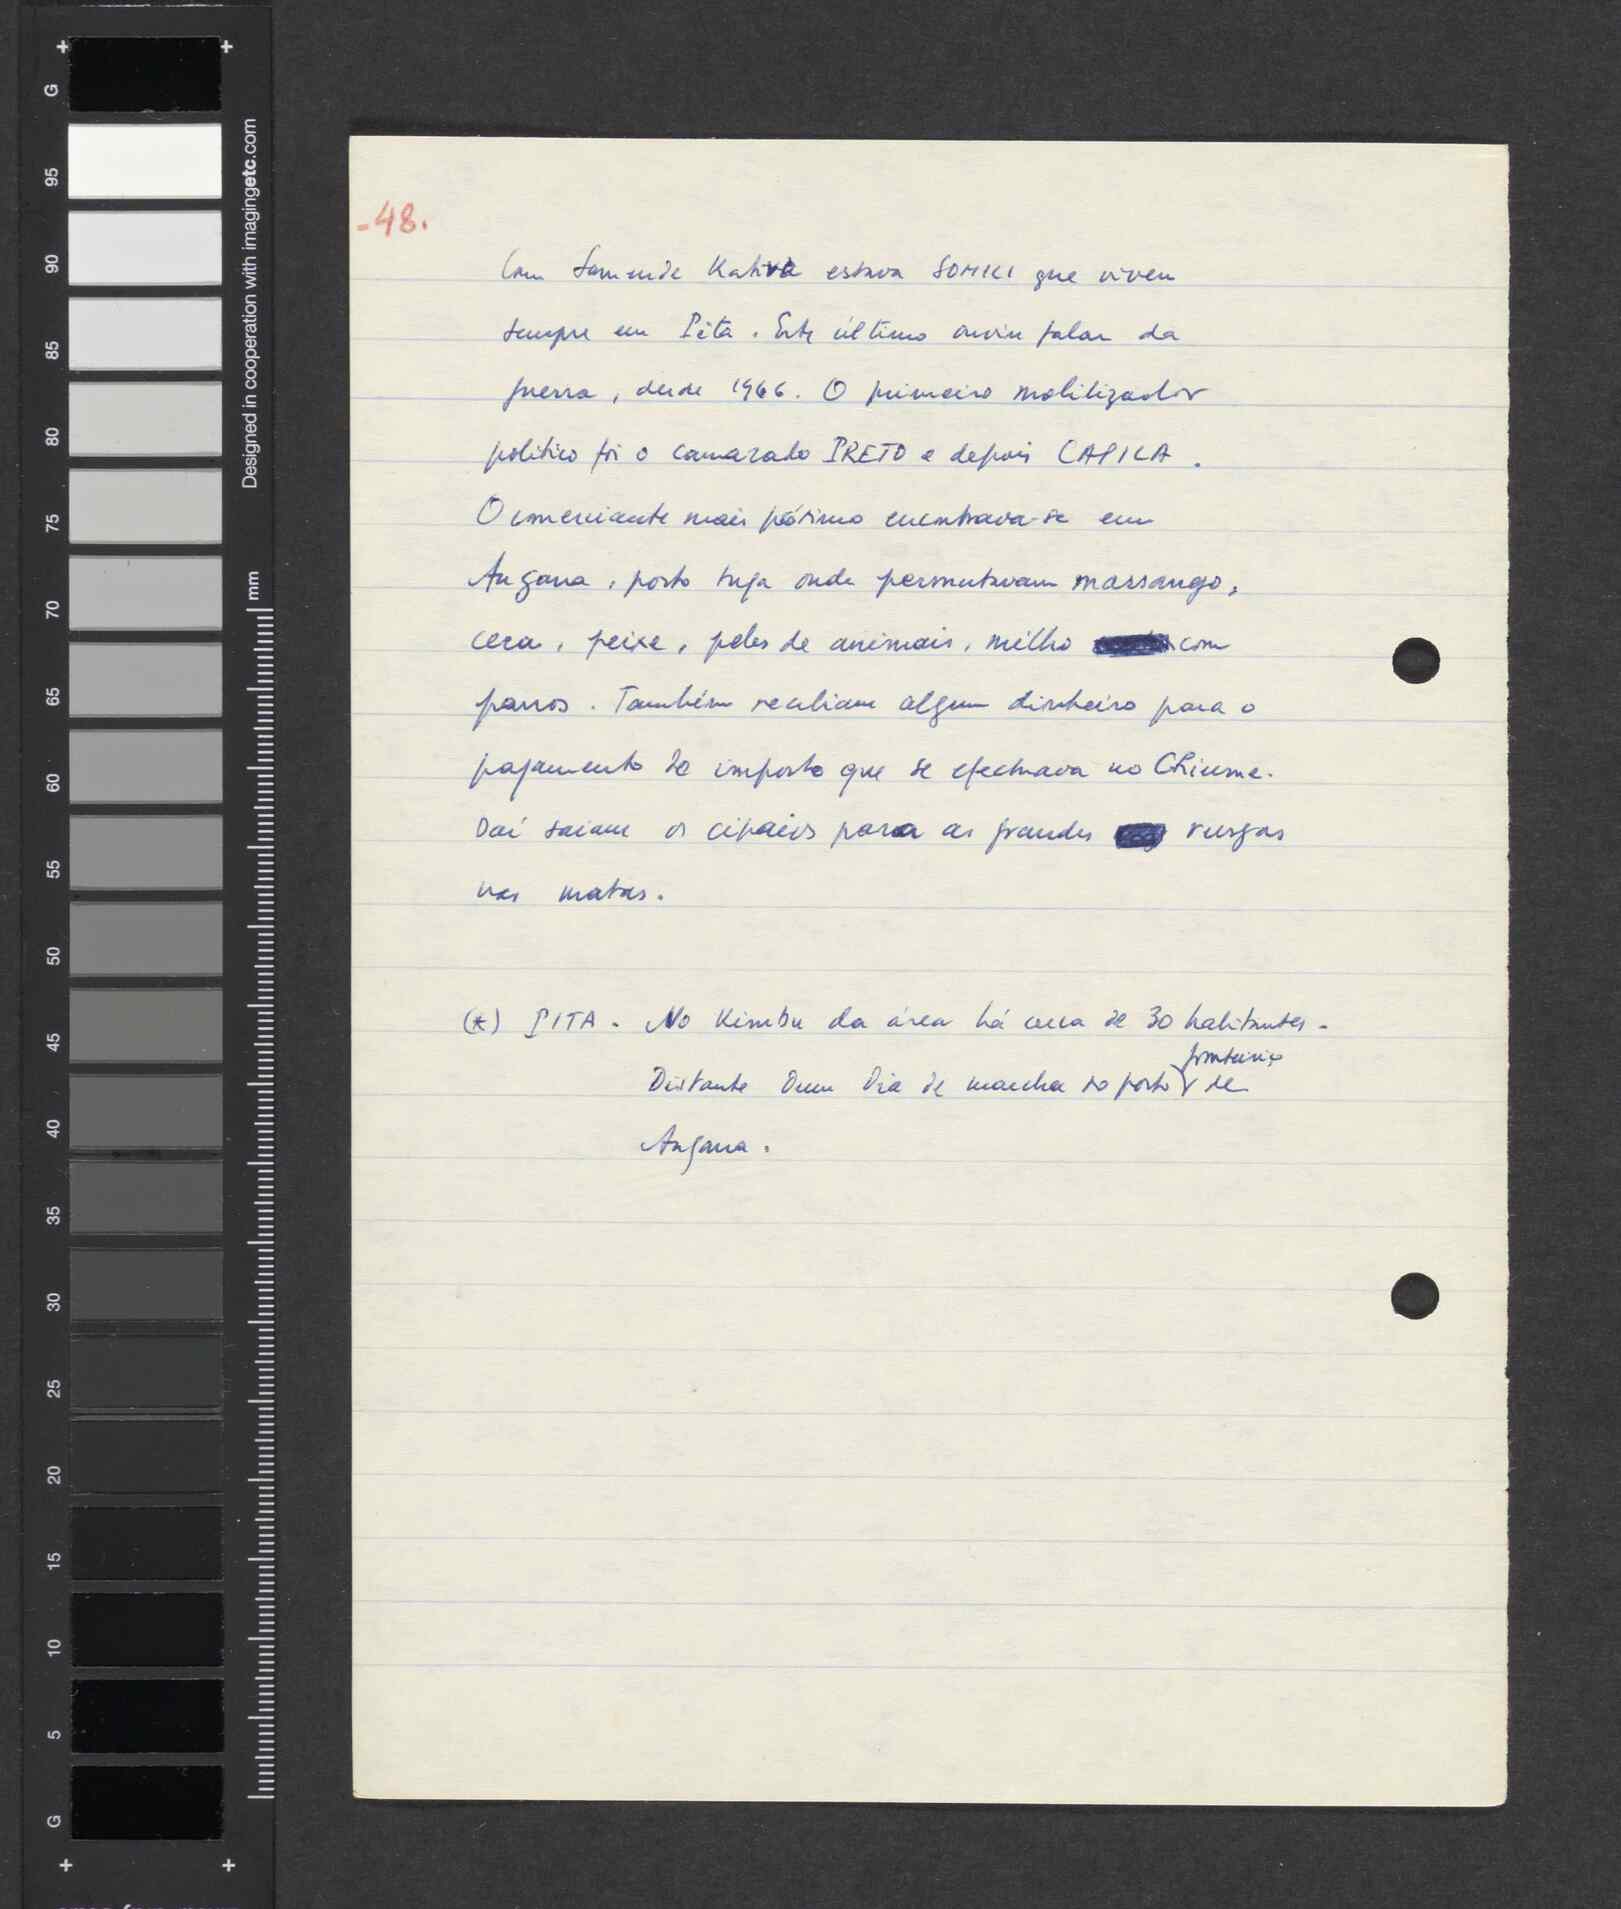 -48.
Com Samende Kativa estava SOMKI que viveu
sempre em Pita. Este último ouviu falar da
guerra, desde 1966. O primeiro mobilizador
politico foi o camarada PRETO e depois CAPILA.
O comerciante mais próximo encontrava-se em
Angana, posto tuga onde permutavam massango,
cera, peixe, peles de animais, milho com
panos. Também recebiam algum dinheiro para o
pagamento do imposto que se efectuava no Chiume.
Daí saiam os cipaios para as grandes rusgas
nas matas.
(*) PITA - No Kimbu da área há cerca de 30 habitantes.
Distante dum dia de marcha do posto fronteiriço de
Angana.
G
95
90
85
80
75
70
65
60
55
50
45
40
35
30
25
20
15
10
5
G
mm
Designed in cooperation with imagingetc.com